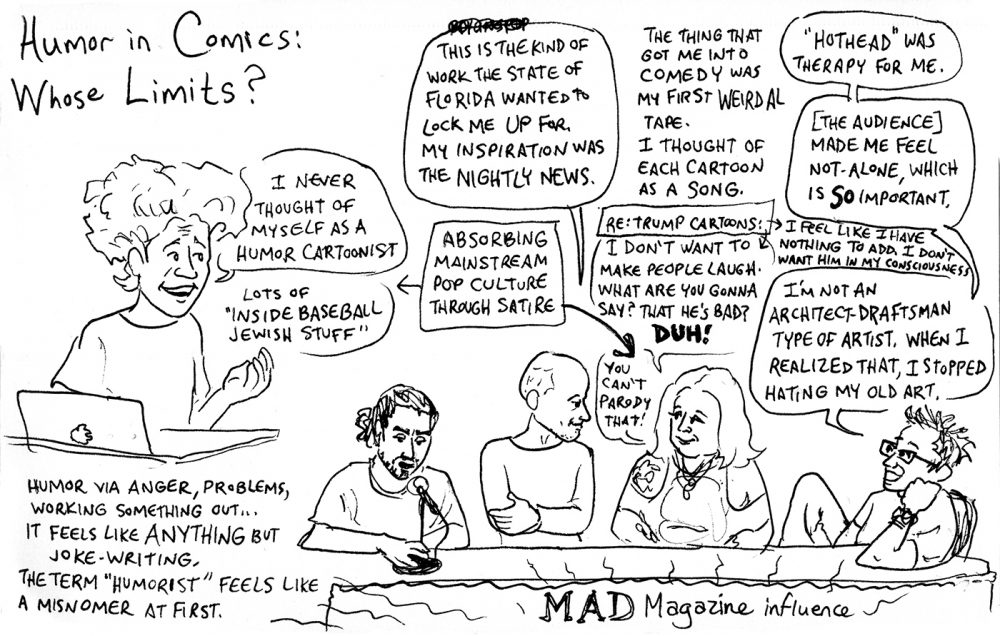 Humor in Comics:
Whose Limits?
I NEVER
THOUGHT OF
MYSELF AS A
HUMOR CARTOONIST
LOTS OF
"INSIDE BASEBALL
JEWISH STUFF"
HUMOR VIA ANGER, PROBLEMS,
WORKING SOMETHING OUT...
IT FEELS LIKE ANYTHING BUT
JOKE-WRITING.
THE TERM "HUMORIST" FEELS LIKE
A MISNOMER AT FIRST.
THIS IS THE KIND OF
WORK THE STATE OF
FLORIDA WANTED TO
LOCK ME UP FOR.
MY INSPIRATION WAS
THE NIGHTLY NEWS.
ABSORBING
MAINSTREAM
POP CULTURE
THROUGH SATIRE
THE THING THAT
GOT ME INTO
COMEDY WAS
MY FIRST WEIRD AL
TAPE.
I THOUGHT OF
EACH CARTOON
AS A SONG.
RE: TRUMP CARTOONS:
I DON'T WANT TO
MAKE PEOPLE LAUGH.
WHAT ARE YOU GONNA
SAY? THAT HE'S BAD?
DUH!
YOU
CAN'T
PARODY
THAT!
"HOTHEAD" WAS
THERAPY FOR ME.
[THE AUDIENCE]
MADE ME FEEL
NOT-ALONE, WHICH
IS SO IMPORTANT.
I FEEL LIKE I HAVE
NOTHING TO ADD. I DON'T
WANT HIM IN MY CONSCIOUSNESS
I'M NOT AN
ARCHITECT-DRAFTSMAN
TYPE OF ARTIST. WHEN I
REALIZED THAT, I STOPPED
HATING MY OLD ART.
MAD Magazine influence